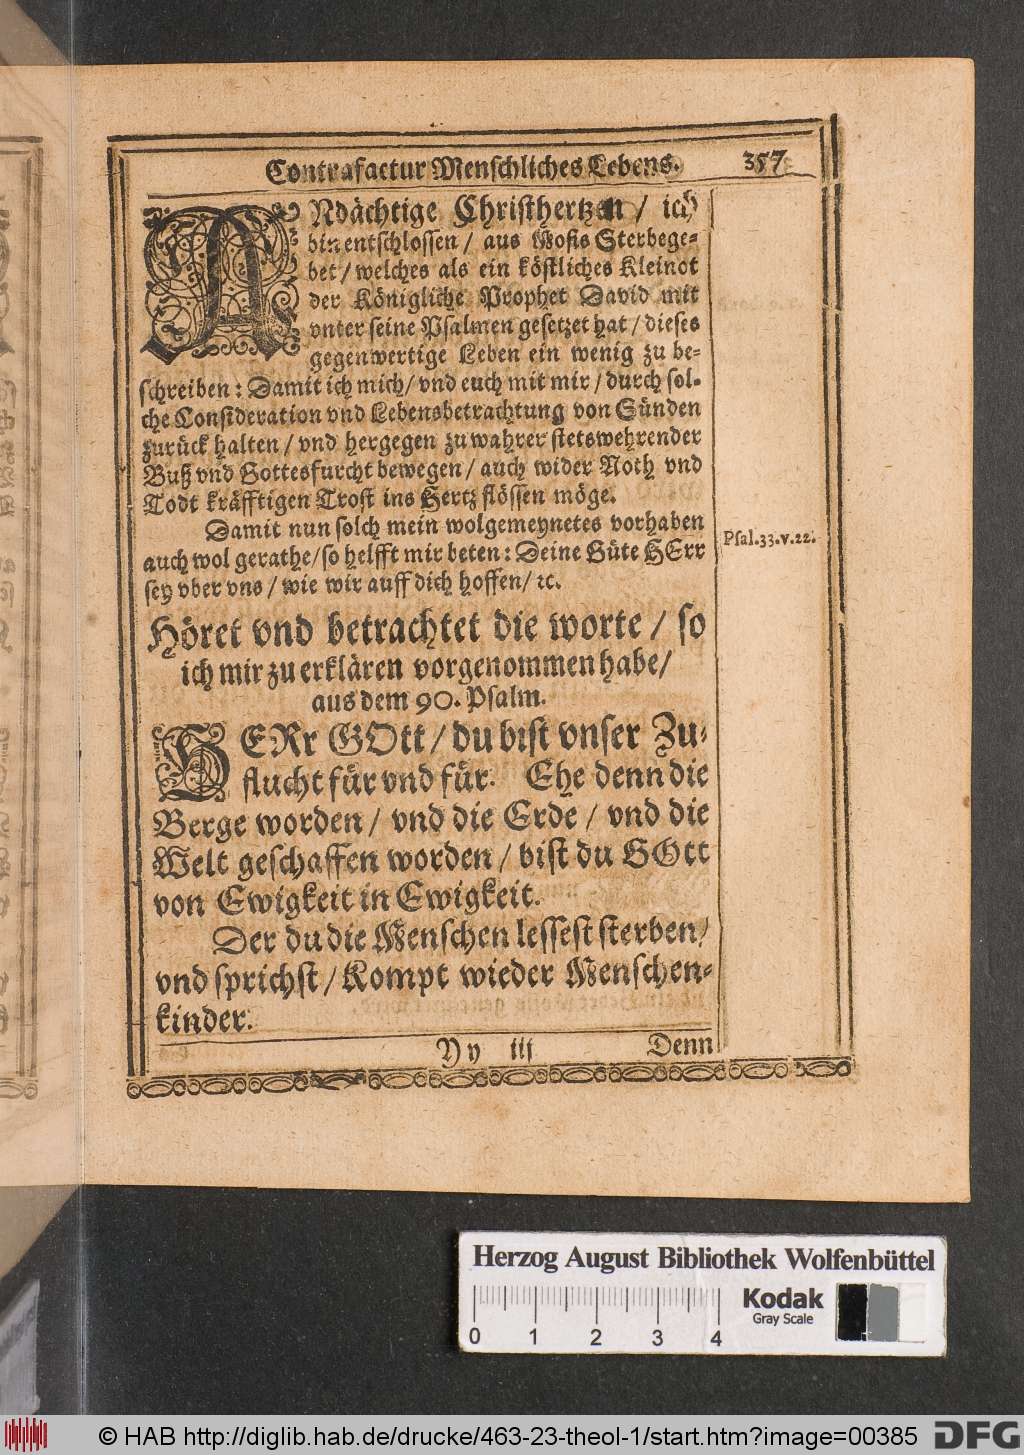 Contrafactur Menschliches Lebens. 357
ANdächtige Christhertzen / ich
bin entschlossen / aus Mosis Sterbege-
bet / welches als ein köstliches Kleinot
der Königliche Prophet David mit
vnter seine Psalmen gesetzet hat / dieses
gegenwertige Leben ein wenig zu be-
schreiben: Damit ich mich / vnd euch mit mir / durch sol-
che Consideration vnd Lebensbetrachtung von Sünden
zurück halten / vnd hergegen zu wahrer stetswehrender
Buß vnd Gottesfurcht bewegen / auch wider Noth vnd
Todt kräfftigen Trost ins Hertz flössen möge.
Damit nun solch mein wolgemeynetes vorhaben
auch wol gerathe / so helfft mir beten: Deine Güte HErr
sey vber vns / wie wir auff dich hoffen / ꝛc.
Psal. 33. v. 22.
Höret vnd betrachtet die worte / so
ich mir zu erklären vorgenommen habe /
aus dem 90. Psalm.
HERr GOtt / du bist vnser Zu-
flucht für vnd für. Ehe denn die
Berge worden / vnd die Erde / vnd die
Welt geschaffen worden / bist du GOtt
von Ewigkeit in Ewigkeit.
Der du die Menschen lessest sterben /
vnd sprichst / Kompt wieder Menschen-
kinder.
Yy iij Denn
Herzog August Bibliothek Wolfenbüttel
0 1 2 3 4
Kodak
Gray Scale
© HAB http://diglib.hab.de/drucke/463-23-theol-1/start.htm?image=00385
DFG